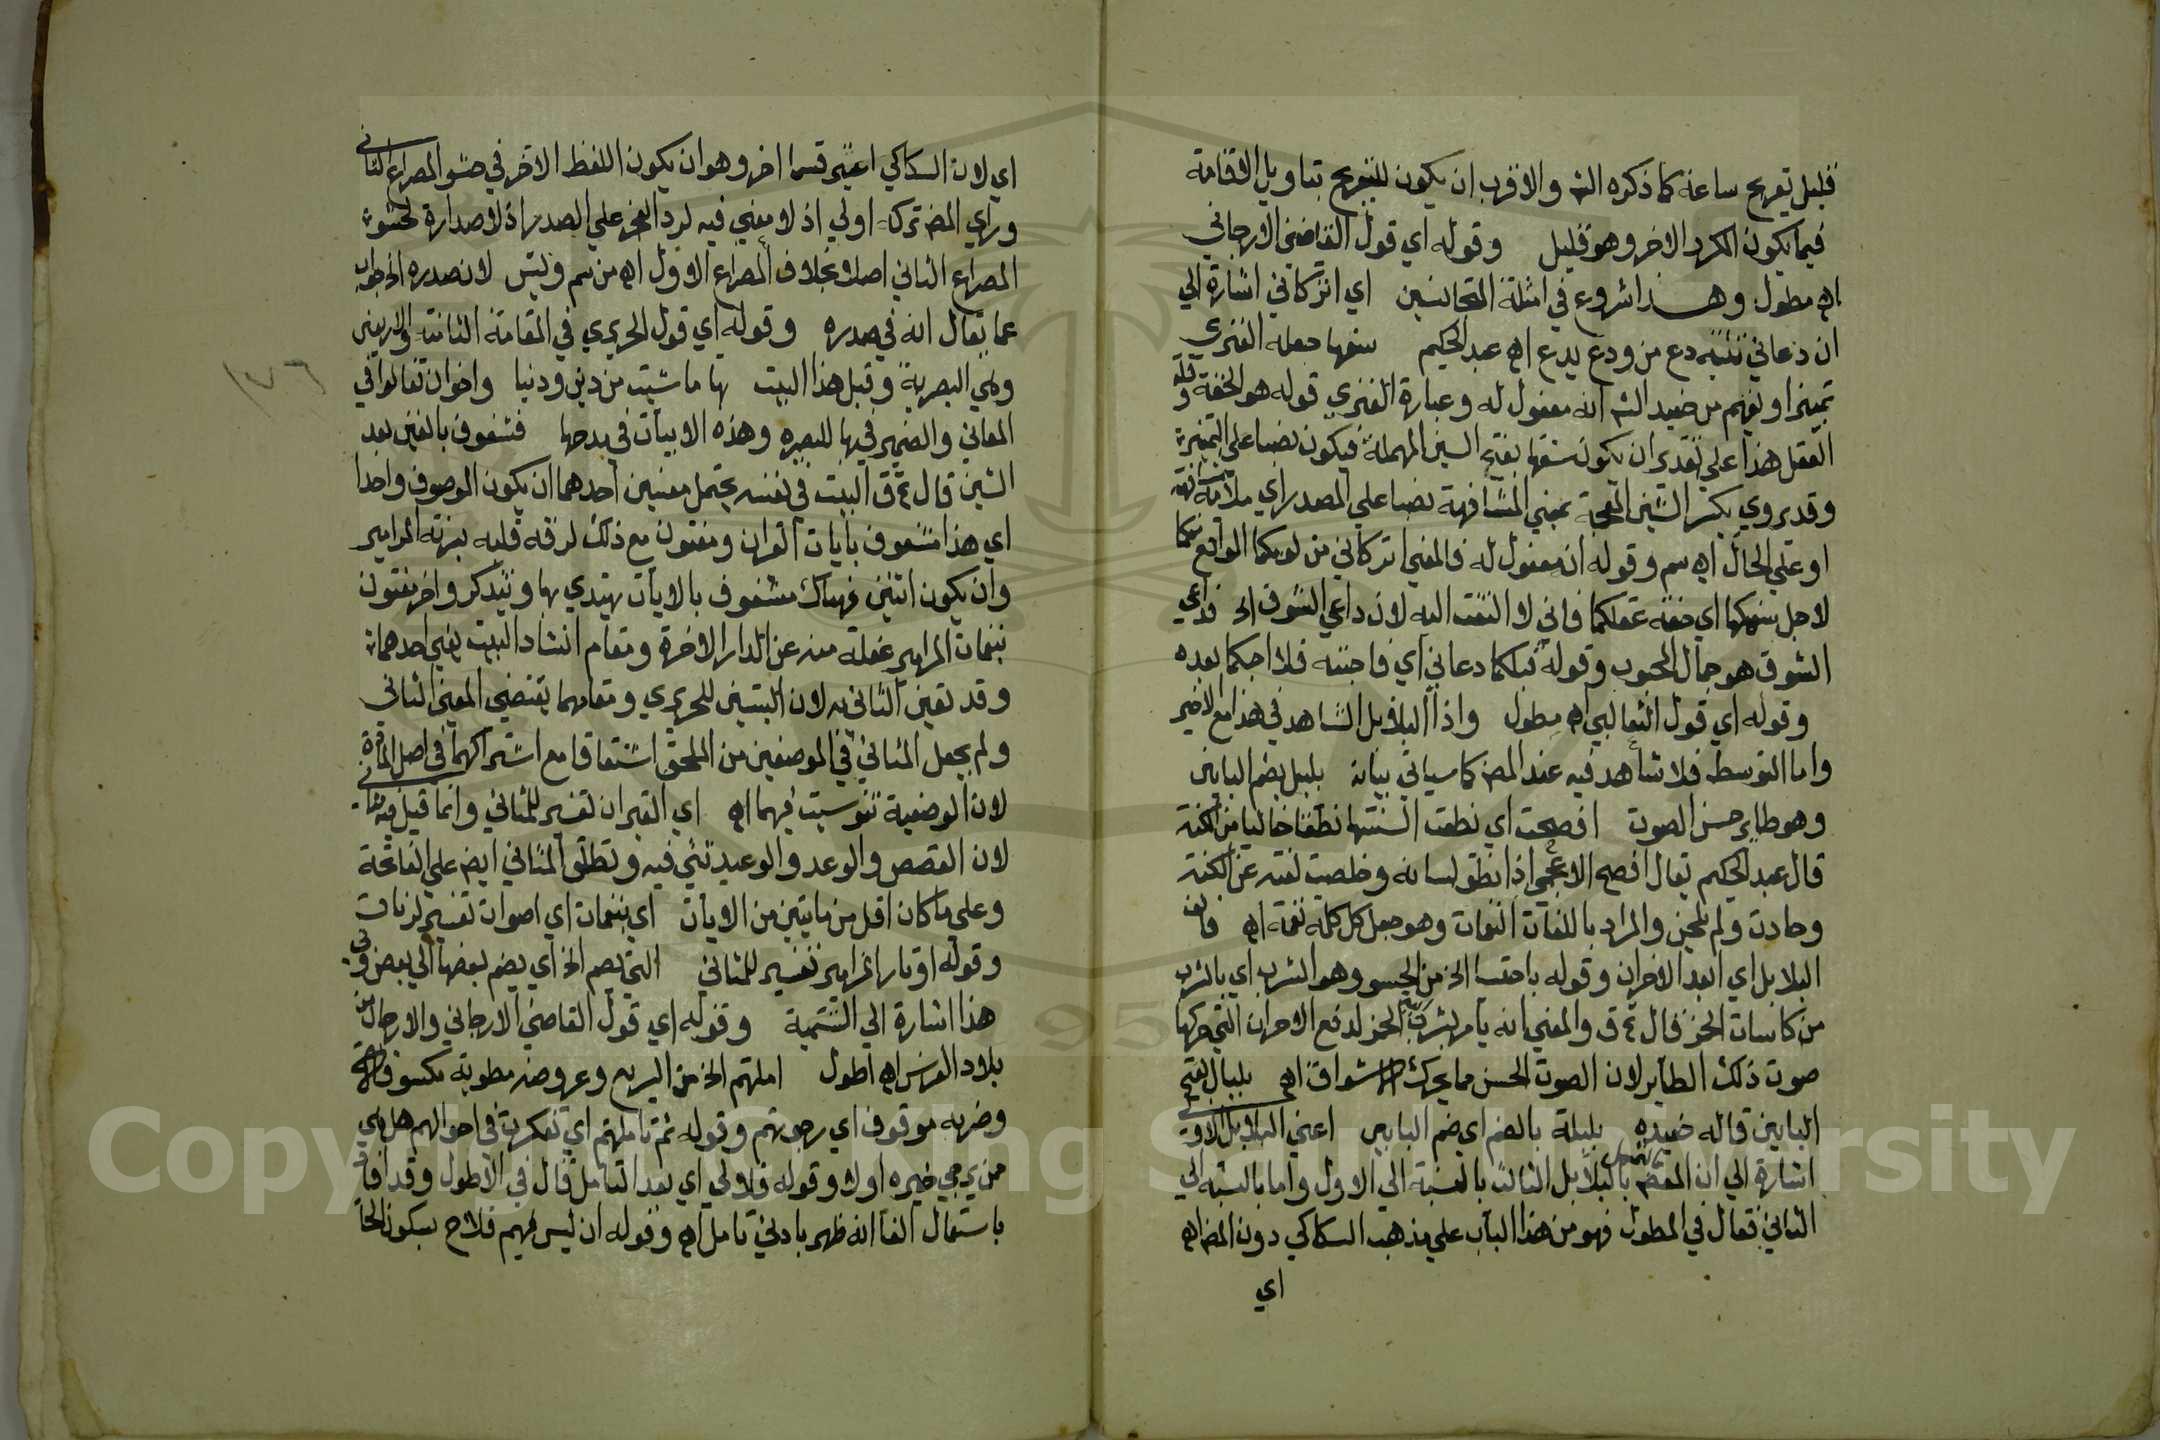 قليل تعريج ساعة كما ذكره الشـ والاقرب ان يكون للتعريج بتاويل الاقامة
فيما يكون المكرر الاخر وهو قليل وقوله اي قول القاضي الارجاني
اهـ مطول وهذا شروع في امثلة المتجانسين اي اتركاني اشارة الي
ان دعاني تثنية دع من ودع يدع اهـ عبد الحكيم سفها جعله الفنري
تميزا ويفهم من حفيد الشـ انه مفعول له وعبارة الفنري قوله هو الخفة وقلة
العقل هذا علي تقدير ان يكون سفها بفتح السين المهملة فيكون نصبا علي التميز
وقد يروي بكسر الشين المعجمة بمعني المشافهة نصبا علي المصدر اي ملامة
او علي الحال اهـ سم وقوله انه مفعول له فالمعني اتركاني من لومكما الواقع منكما
لاجل سفهكما اي خفة عقلكما فاني لا التفت اليه لان داعي الشوق الخ فداعي
الشوق هو جمال المحبوب وقوله قبلكما دعاني اي فاجبته فلا اجبكما بعده
وقوله اي قول الثعالبي اهـ مطول واذا البلابل الشاهد في هذا مع الاخير
واما التوسط فلا شاهد فيه عند المصـ كما سياتي بيانه بلبل بضم البابين
وهو طاير حسن الصوت افصحت اي نطقت السنتها نطقا خاليا من لكنة
قال عبد الحكيم يقال افصح الاعجمي اذا نطق لسانه وخلصت لغته عن لكنة
وجادت ولم يلحن والمراد باللغات النغمات وهو جعل كل كلمة نغمة اهـ فانف
البلابل اي ابعد الاحزان وقوله باحتسا الخ من الحسو وهو الشرب اي بالشرب
من كاسات الخمر قال ع ق والمعني انه يامر بشرب الخمر لدفع الاحزان التي حركها
صوت ذلك الطاير لان الصوت الحسن مما يحرك الاشواق اهـ بلبال بفتح
البابين قاله حفيده بلبلة بالضم اي ضم البابين اعني البلابل الاول
اشارة الي ان المقصود تمثيل بالبلابل الثالث بالنسبة الي الاول واما بالنسبة الي
الثاني فقال في المطول فهو من هذا الباب علي مذهب السكاكي دون المصـ اهـ
اي
اي لان السكاكي اعتبر قسما اخر وهو ان يكون اللفظ الاخر في حشو المصراع الثاني
وراي المصـ تركه اولي اذ لا معني فيه لرد العجز علي الصدر اذ لا صدارة لحشو
المصراع الثاني اصلا بخلاف المصراع الاول اهـ من سم و يس لان صدره الخ جواب
عما يقال انه في صدره وقوله اي قول الحريري في المقامة الثامنة والاربعين
وهي البصرية وقبل هذا البيت بها ما شيت من دين ودنيا واخوان تغالوا في
المعاني والضمير فيها للبصره وهذه الابيات في مدحها فشغوف بالغين بعد
الشين قال ع ق البيت في نفسه يحتمل معنيين احدهما ان يكون الموصوف واحدا
اي هذا مشغوف بايات القران ومفتون مع ذلك لرقة قلبه برنة المزامير
وان يكون اثنين فهناك مشغوف بالايات يهتدي بها ويتذكر واخر مفتون
بنغمات المزامير غفلة منه عن الدار الاخرة ومقام انشاد البيت يعين احدهما
وقد تعين الثاني لان البيتين للحريري ومقامهما يقتضي المعني الثاني
ولم يجعل المثاني في الموضعين من الملحق اشتقاقا مع اشتراكهما في اصل المادة
لان الوصفية تنوسيت فيهما اهـ اي القران تفسير للمثاني وانما قيل فيه مثاني
لان القصص والوعد والوعيد تثني فيه وتطلق المثاني ايضـ علي الفاتحة
وعلي ما كان اقل من مايتين من الايات اي بنغمات اي اصوات تفسير لرنات
وقوله اوتار المزامير تفسير للمثاني التي يضم الخ اي يضم بعضها الي بعض وفي
هذا اشارة الي التسمية وقوله اي قول القاضي الارجاني والارجان من
بلاد الفرس اهـ اطول املتهم الخ من السريع وعروضه مطوية مكسوفة
وضربه موقوف اي رجوتهم وقوله ثم تاملتهم اي تفكرت في احوالهم هل هي
ممن يرجي خيره اولا وقوله فلاح لي اي بعد التامل قال في الاطول وقد افاد
باستعمال الفا انه ظهر بادني تامل اهـ وقوله ان ليس فيهم فلاح بسكون الحا
١٧٦
Copyright © King Saud University